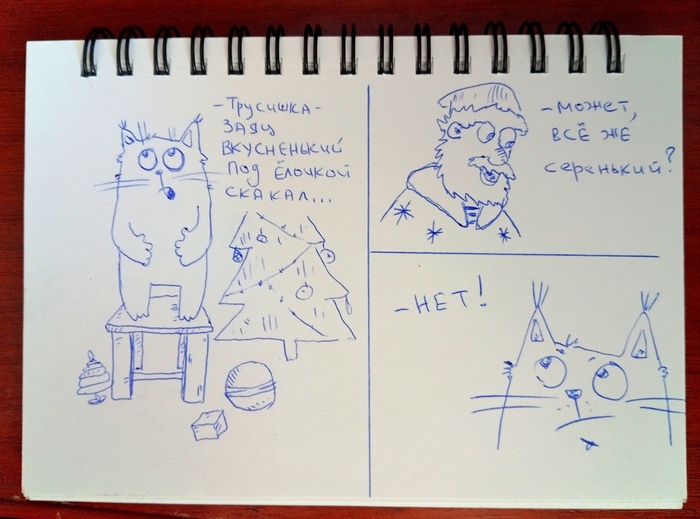 -Трусишка-
заяц
вкусненький
под ёлочкой
скакал...
-может,
всё же
серенький?
-НЕТ!